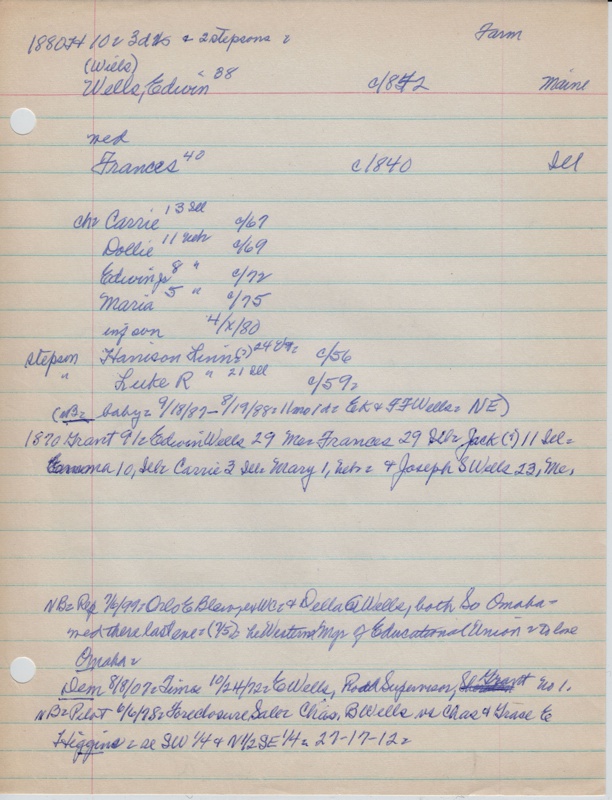 1880 Ft 10= 3 d's & 2 stepsons = Farm
(Wiels)
Wells, Edwin 38 c/1842 Maine
med
Frances 40 c1840 Ill
ch= Carrie 13 Ill c/67
Dollie 11 Nebr c/69
Edwing 8 " c/72
Maria 5 " c/75
inf son 4/x/80
stepson Harrison Linn(?) 24 c/56
" Luke R " 21 Ill c/59=
(NB= baby= 9/18/87-8/19/88=11mo 1d= EK & FF Wells= NE)
1870 Grant 91= Edwin Wells 29 Me= Frances 29 Ill= Jack (?) 11 Ill=
Emma 10, Ill= Carrie 3 Ill= Mary 1, Nebr= & Joseph S Wells 23, Me,
NB= Rep 7/6/99= Orlo E Blawyer WC= & Della A Wells, both So Omaha=
med there last eve= (7/5) he Western Mgr of Educational Union= to live
Omaha=
Dem 8/8/07= Times 10/24/72= E Wells, Road Supervisor, Grant No 1.
NB= Pilot 6/6/78= Foreclosure Sale= Chas. B Wells vs Chas & Grase E
Higgins= se SW 1/4 & N 1/2 SE 1/4= 27-17-12=